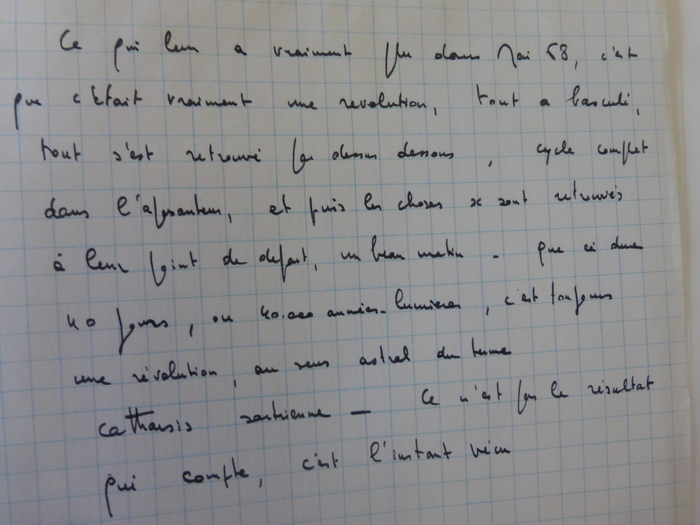 Ce qui a vraiment dans Mai 68, c'est
que c'était vraiment une revolution, tout a basculé,
tout s'est retrouvé sens dessus dessous, cycle complet
dans l'apesanteur, et puis les choses se sont retrouvés
à leur point de depart, un beau matin - que ci dure
40 jours, ou 40.000 années-lumieres, c'est toujours
une révolution, au sens astral du terme
catharsis sartrienne — Ce n'est pas le résultat
qui compte, c'est l'instant vécu